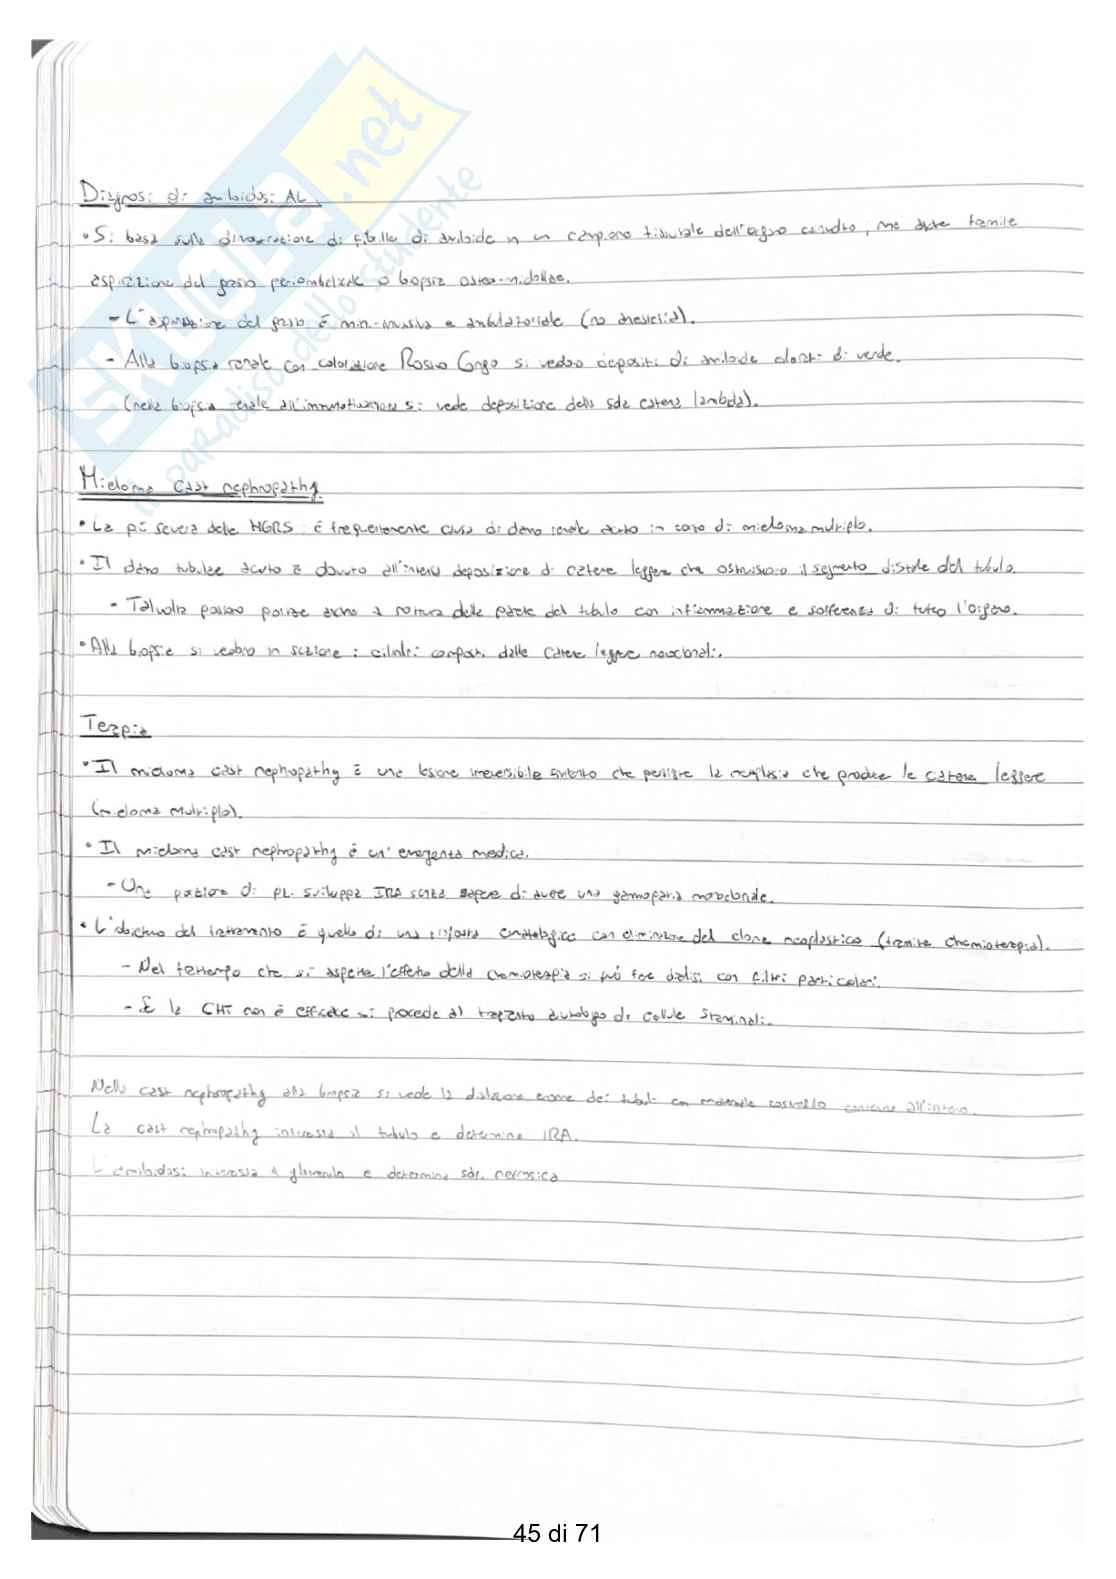 Diagnosi di amiloidosi AL
• Si basa sulla dimostrazione di fibrille di amiloide in un campione tissutale dell'organo coinvolto, ma anche tramite
aspirazione del grasso periombelicale o biopsia osteo-midollare.
- L'aspirazione del grasso è mini-invasiva e ambulatoriale (no anestesia).
- Alla biopsia renale con colorazione Rosso Congo si vedono depositi di amiloide colorati di verde.
(nella biopsia renale all'immunofluorescenza si vede deposizione della sola catena lambda).
Mieloma cast nephropathy
• La più severa delle MGRS è frequentemente causa di danno renale acuto in caso di mieloma multiplo.
• Il danno tubulare acuto è dovuto all'intensa deposizione di catene leggere che ostruiscono il segmento distale del tubulo.
- Talvolta possono portare anche a rottura della parete del tubulo con infiammazione e sofferenza di tutto l'organo.
• Alla biopsia si vedono in sezione i cilindri composti dalle catene leggere monoclonali.
Terapia
• Il mieloma cast nephropathy è una lesione irreversibile fintanto che persiste la neoplasia che produce le catene leggere
(mieloma multiplo).
• Il mieloma cast nephropathy è un'emergenza medica.
- Una porzione di pz. sviluppa IRA senza sapere di avere una gammopatia monoclonale.
• L'obiettivo del trattamento è quello di una risposta ematologica con eliminazione del clone neoplastico (tramite chemioterapia).
- Nel frattempo che si aspetta l'effetto della chemioterapia si può fare dialisi con filtri particolari.
- Se la CHT non è efficace si procede al trapianto autologo di cellule staminali.
Nella cast nephropathy alla biopsia si vede la dilatazione enorme dei tubuli con materiale contenuto all'interno.
La cast nephropathy interessa il tubulo e determina IRA.
L'amiloidosi interessa il glomerulo e determina sdr. nefrosica
SKUOLA.net
il paradiso dello studente
45 di 71